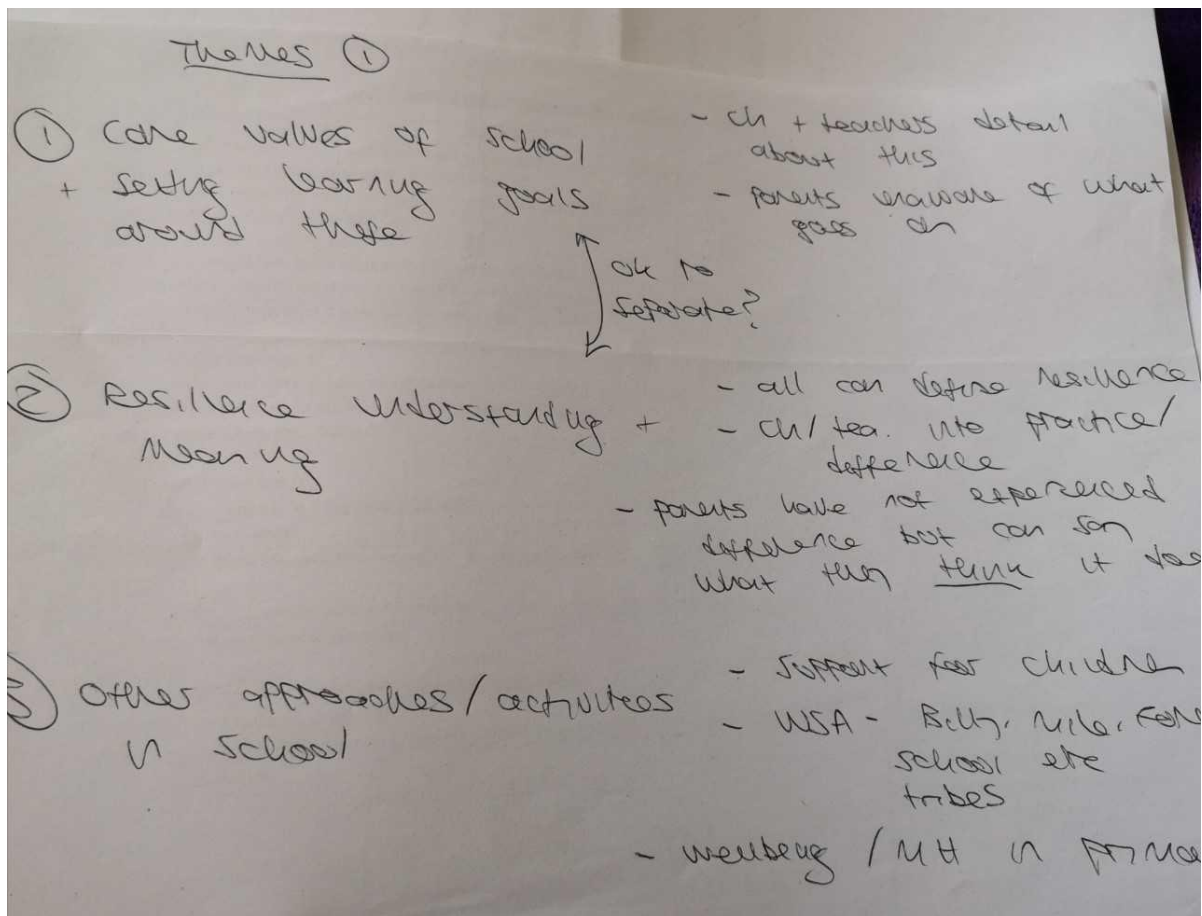 Themes ①
① Core values of school
+ setting learning goals
around these
- ch + teachers detail
about this
- parents unaware of what
goes on
ok to
separate?
② Resilience understanding +
meaning
- all can define resilience
- ch/tea. into practice/
difference
- parents have not experienced
difference but can say
what they think it does
③ Other approaches/activities
in school
- support for children
- WSA - Billy, Mile,
school etc
tribes
- wellbeing / MH in